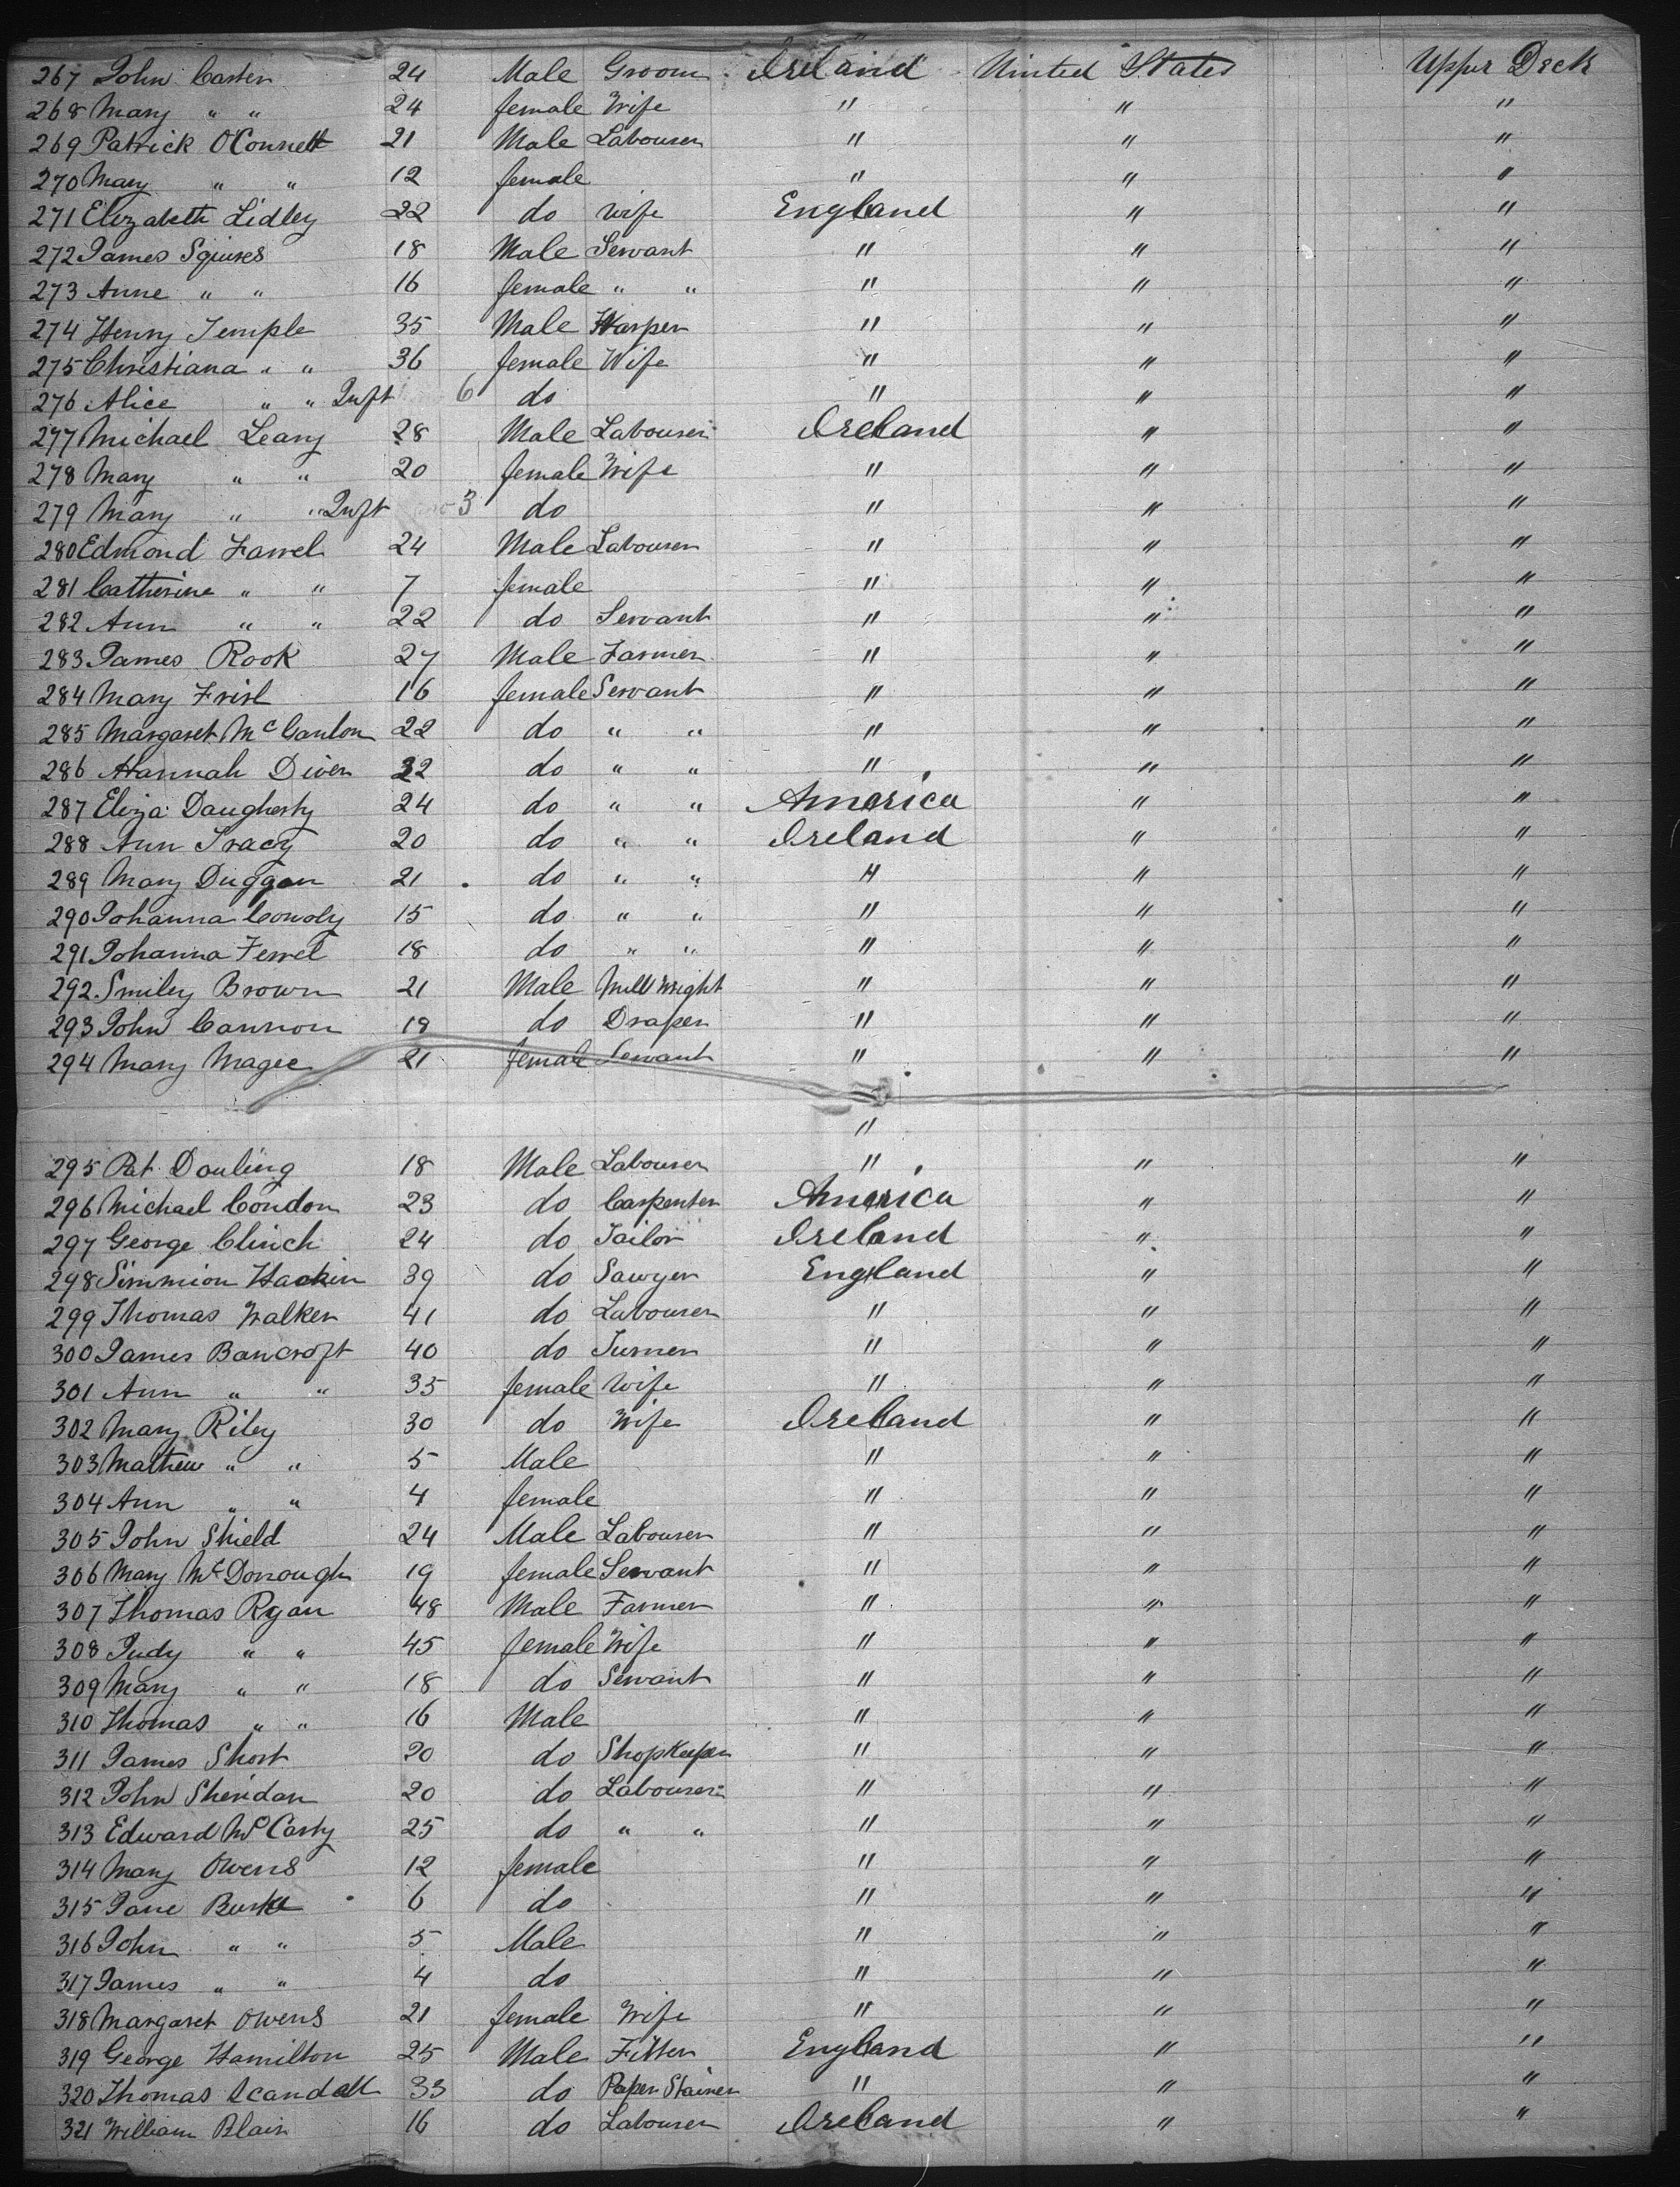 267 John Carten 24 Male Groom Ireland United States Upper Deck
268 Mary " " 24 female Wife " " "
269 Patrick O'Connell 21 Male Labourer " " "
270 Mary " " 12 female " " "
271 Elizabeth Lidley 22 do wife England " "
272 James Squires 18 Male Servant " " "
273 Anne " " 16 female " " " " "
274 Henry Temple 35 Male Harper " " "
275 Christiana " " 36 female Wife " " "
276 Alice " " Inft 6 do " " "
277 Michael Leary 28 Male Labourer Ireland " "
278 Mary " " 20 female Wife " " "
279 Mary " " Inft 3 do " " "
280 Edmond Farrel 24 Male Labourer " " "
281 Catherine " " 7 female " " "
282 Ann " " 22 do Servant " " "
283 James Rook 27 Male Farmer " " "
284 Mary 16 female Servant " " "
285 Margaret McCanlon 22 do " " " " "
286 Hannah Diven 32 do " " " " "
287 Eliza Daugherty 24 do " " America " "
288 Ann Tracy 20 do " " Ireland " "
289 Mary Duggan 21 do " " " " "
290 Johanna Conoly 15 do " " " " "
291 Johanna Ferrel 18 do " " " " "
292 Smiley Brown 21 Male Mill wright " " "
293 John Cannon 19 do Draper " " "
294 Mary Magee 21 female Servant " " "
"
295 Pat Douling 18 Male Labourer " " "
296 Michael Condon 23 do Carpenter America " "
297 George Clinch 24 do Tailor Ireland " "
298 Simmion Hackin 39 do Sawyer England " "
299 Thomas Walker 41 do Labourer " " "
300 James Bancroft 40 do Turner " " "
301 Ann " " 35 female wife " " "
302 Mary Riley 30 do Wife Ireland " "
303 Mathew " " 5 Male " " "
304 Ann " " 4 female " " "
305 John Shield 24 Male Labourer " " "
306 Mary McDonough 19 female Servant " " "
307 Thomas Ryan 48 Male Farmer " " "
308 Judy " " 45 female Wife " " "
309 Mary " " 18 do Servant " " "
310 Thomas " " 16 Male " " "
311 James Short 20 do Shopkeeper " " "
312 John Sheridan 20 do Labourer " " "
313 Edward McCarty 25 do " " " " "
314 Mary Owens 12 female " " "
315 Jane Burke 6 do " " "
316 John " " 5 Male " " "
317 James " " 4 do " " "
318 Margaret Owens 21 female Wife " " "
319 George Hamilton 25 Male Fitter England " "
320 Thomas Scandall 33 do Paper Stainer " " "
321 William Blair 16 do Labourer Ireland " "